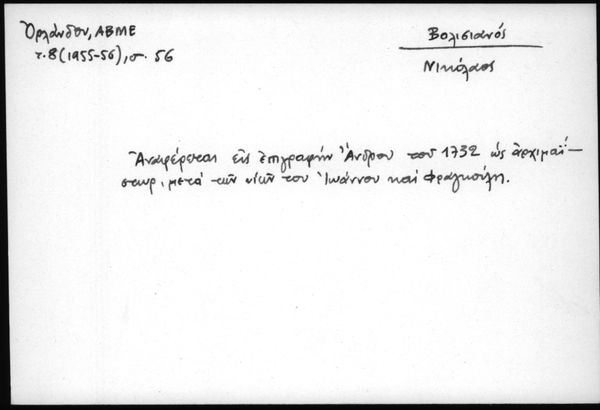 Ὀρλάνδου, ΑΒΜΕ
τ. 8 (1955-56), σ. 56
Βολισιανός
Νικόλαος
Ἀναφέρεται εἰς ἐπιγραφήν Ἄνδρου τοῦ 1732 ὡς ἀρχιμαΐ-
στωρ, μετά τῶν υἱῶν του Ἰωάννου καί Φραγκούλη.